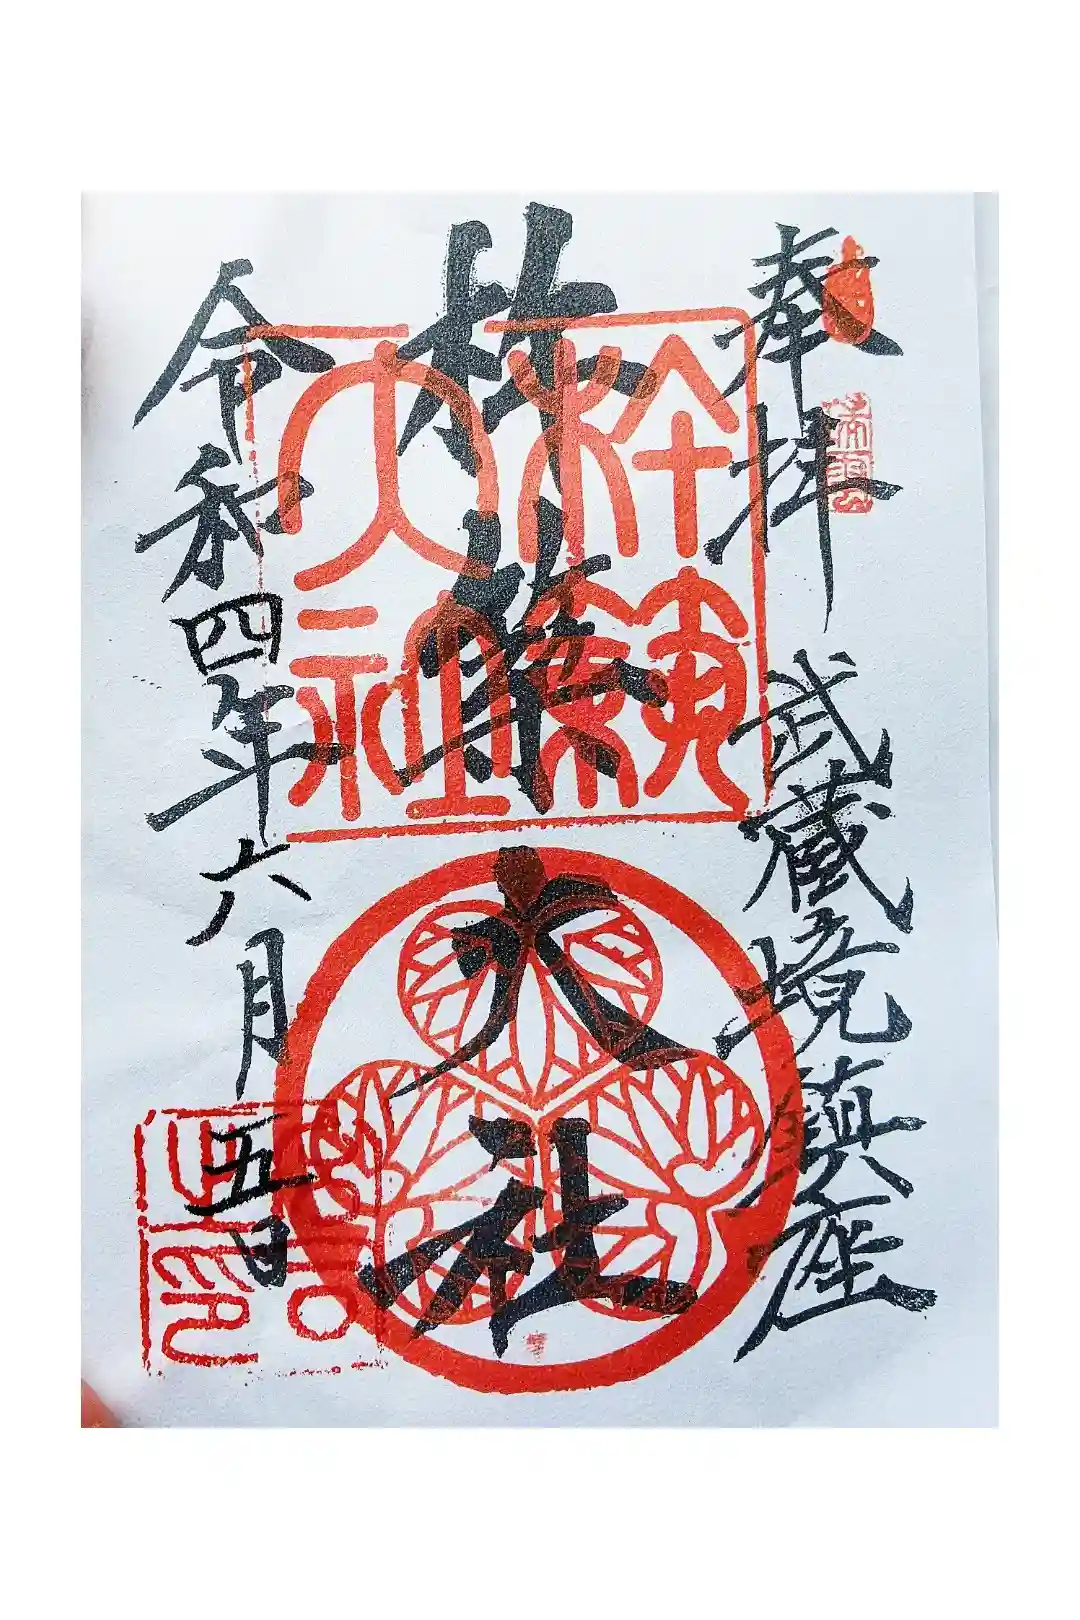 奉拝
武蔵境鎮座
杵築大社
杵築
大社
令和四年六月五日